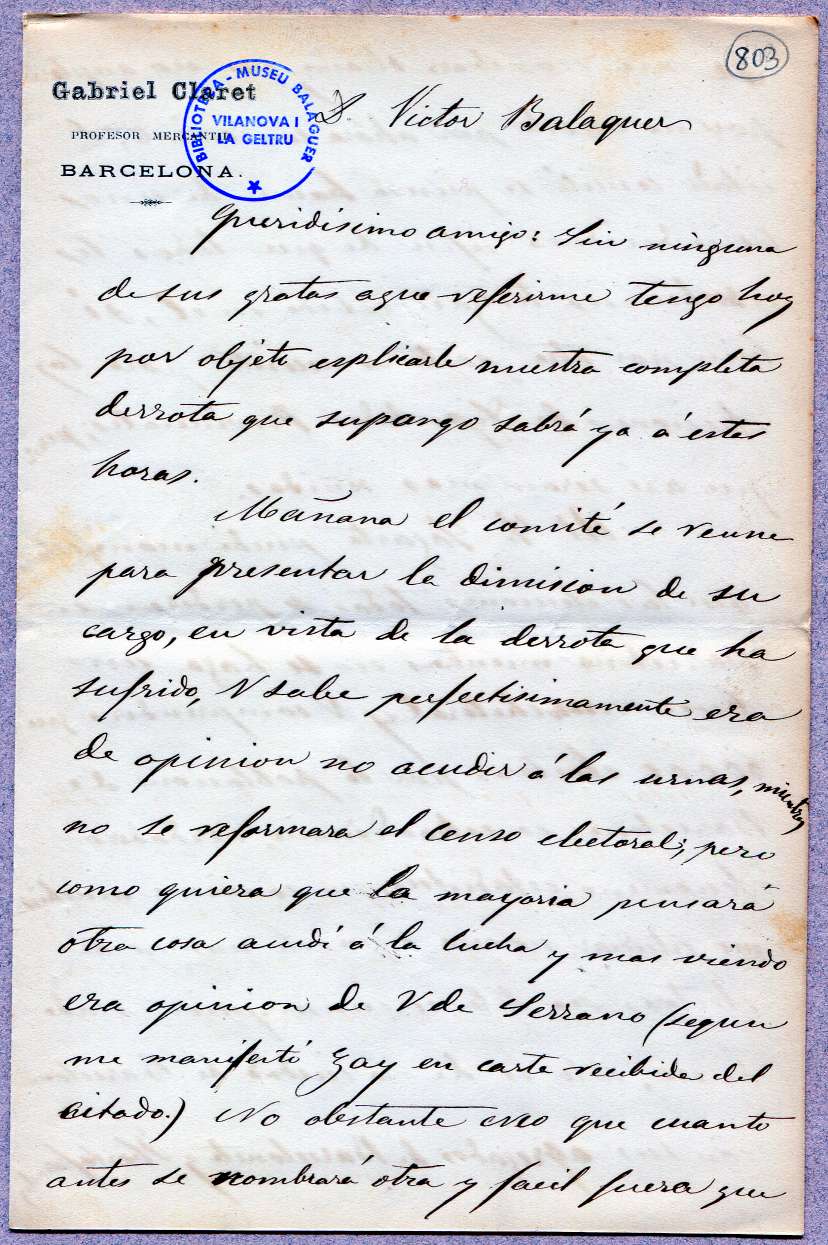 803
Gabriel Claret
PROFESOR MERCANTIL
BARCELONA.
BIBLIOTECA - MUSEU BALAGUER
VILANOVA I
LA GELTRU
D. Victor Balaguer
Queridísimo amigo: Sin ninguna
de sus gratas aque referirme tengo hoy
por objeto esplicarle nuestra completa
derrota que supongo sabrá ya á estas
horas.
Mañana el comité se reune
para presentar la dimision de su
cargo, en vista de la derrota que ha
sufrido, V sabe perfectisimamente era
de opinion no acudir á las urnas, mientras
no se reformara el censo electoral; pero
como quiera que la mayoria pensará
otra cosa acudí á la lucha y mas viendo
era opinion de V de Serrano (segun
me manifestó Gay en carta recibida del
citado.) No obstante creo que cuanto
antes se nombrará otra y facil fuera que